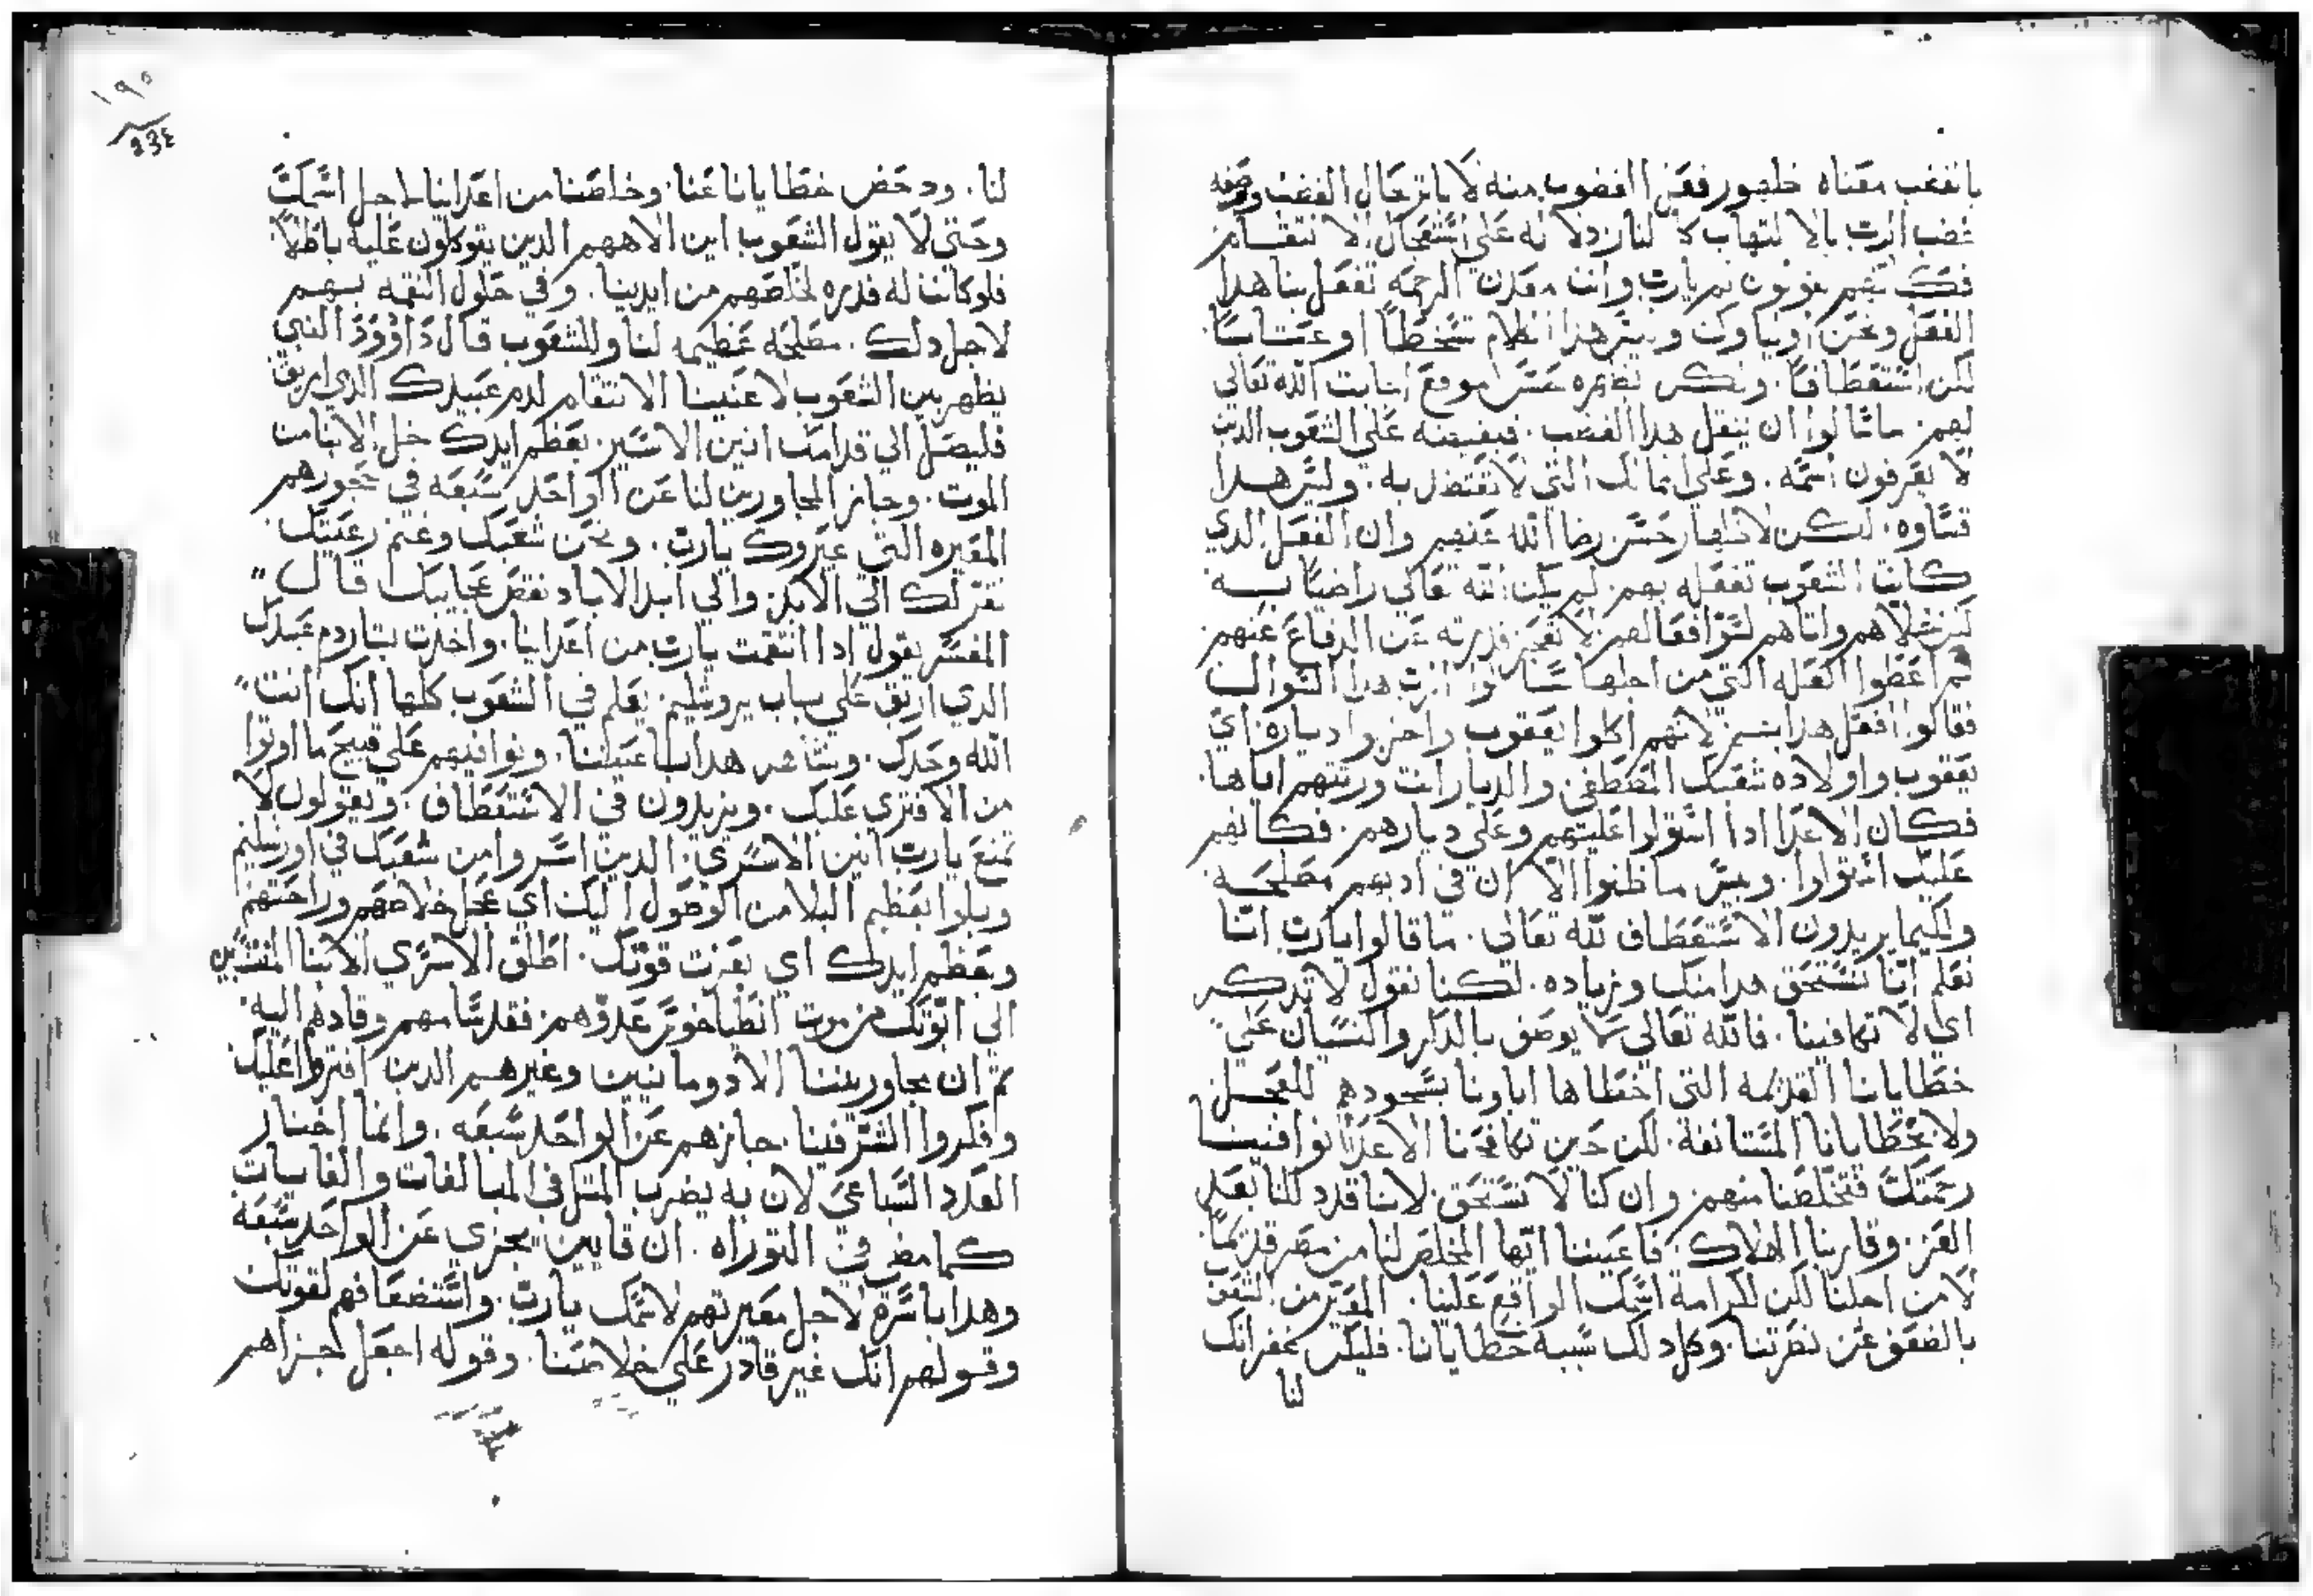 بالغضب معناه ظهور فعل الغضوب منه لا بانزعال الغضب وصفه
غضب الرب بالالتهاب كالنار دلاله على استعجال الانتقام
فكانهم يقولون لم يارب وانت معدن الرحمه تفعل بنا هدا
الفعل ونحن اولياوك وليس هدا الكلام تسخطاً او عتاباً
لكن استعطافاً
لهم سالوا ان ينقل هدا الغضب فيفيضه على الشعوب الدين
لا يعرفون اسمه وعلى الممالك التي لا تعتضد به وليس هدا
قساوه لكن لاظهار حسن رضا الله عنهم وان الفعل الدي
كانت الشعوب تفعله بهم لم يكن الله تعالى راضياً به
لهم لا تعجز قدرته عن الدفاع عنهم
ثم اعطوا العله التي من اجلها سالوا الرب هدا السوال
فقالوا افعل هدا بهم لانهم اكلوا يعقوب واخربوا دياره اي
يعقوب واولاده شعبك المصطفى والديار انت ورثتهم اياها
فكان الاعدا ادا استولوا عليهم وعلى ديارهم فكانهم
عليك استولوا وليس ما ظنوا الا ان في ادبهم مصلحه
ولكيما يريدون الاستعطاف لله تعالى ما قالوا يارب اننا
نعلم اننا نستحق هدا منك وزياده لكننا نقول لا تدكر
اي لا تكافينا فالله تعالى لا يوصف بالدكر والنسيان على
خطايانا القديمه التي اخطاها اباونا بسجودهم للعجل
ولا بخطايانا المستانفة لكن حين تكافحنا الاعدا توافينا
رحمتك فتخلصنا منهم وان كنا لا نستحق لاننا قد دللنا بعد
العز وقاربنا الهلاك فاعيننا ايها المخلص لنا من مصر قديماً
لا من اجلنا لكن لكرامة اسمك الواقع علينا المعير من الشعوب
بالضعف عن نصرتنا وكل دلك سببه خطايانا فليكن غفرانك
لنا
١٩٥
234
لنا ودحض خطايانا عنا وخلصنا من اعداينا لاجل اسمك
وحتى لا يقول الشعوب اين الاههم الدين يتوكلون عليه باطلاً
فلو كانت له قدره لخلصهم من ايدينا وفي حلول النقمه بهم
لاجل دلك مصلحه عظيمه لنا وللشعوب قال داوود النبي
يظهر بين الشعوب لاعيننا الانتقام لدم عبيدك الدي اريق
فليصل الى قدامك انين الاسير بعظم ايدك خل الابنا من
الموت وجاز المجاورين لنا عن الواحد سبعه في حجورهم
المعيره التي عيروك يارب ونحن شعبك وغنم رعيتك
نقر لك الى الابد والى ابد الاباد نقص عجايبك قال
المفسر يقول ادا انتقمت يارب من اعداينا واخدت بتار دم عبيدك
الدي اريق على باب يروشليم يعلم في الشعوب كلها انك انت
الله وحدك ونشاهد هدا باعيننا وتوافيهم على قبيح ما اوتوا
من الافترى عليك ويزيدون في الاستعطاف ويقولون لا
تمنع يارب انين الاسرى الدين اسروا من شعبك في اورشليم
وبلوا بعظيم البلا من الوصول اليك اي عجل خلاصهم وراحتهم
وبعظم ايدك اي بعزت قوتك اطلق الاسرى الابنا المنتسبين
الى ابوتك من موت انطياخوس عدوهم فقد سامهم وقادهم اليه
تم ان مجاوريننا الادومانيين وغيرهم الدين افتروا عليك
وافكروا الشر فينا جازهم عن الواحد سبعه وانما اختار
العدد السباعي لان به يضرب المثل في المبالغات والغايات
كما مضى في التوراه ان قايين يجزي عن الواحد سبعه
وهدا باسره لاجل معيرتهم لاسمك يارب واستضعافهم لقوتك
وقولهم انك غير قادر على خلاصنا وقوله اجعل جزاهم